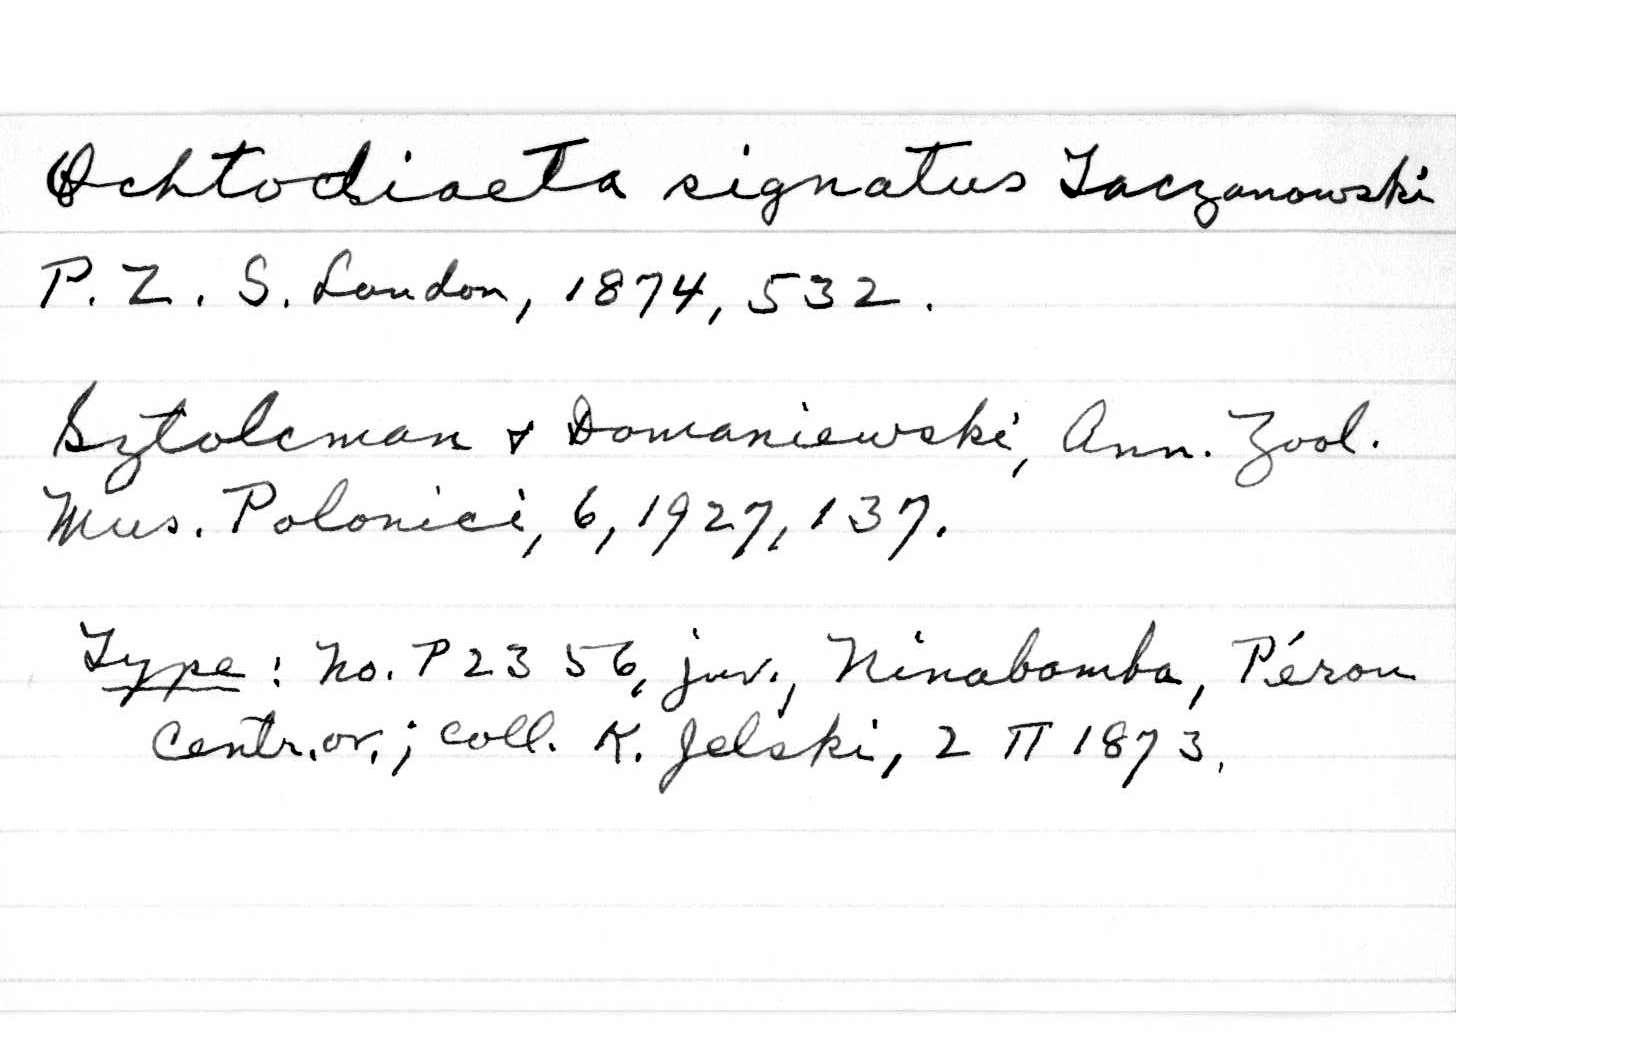 Ochtodiaeta signatus Taczanowski
P. Z. S. London, 1874, 532.
Sztolcman & Domaniewski, Ann. Zool.
Mus. Polonici, 6, 1927, 137.
Type: No. P2356, juv., Ninabamba, Pérou
Centr. or.; coll. K. Jelski, 2 II 1873.